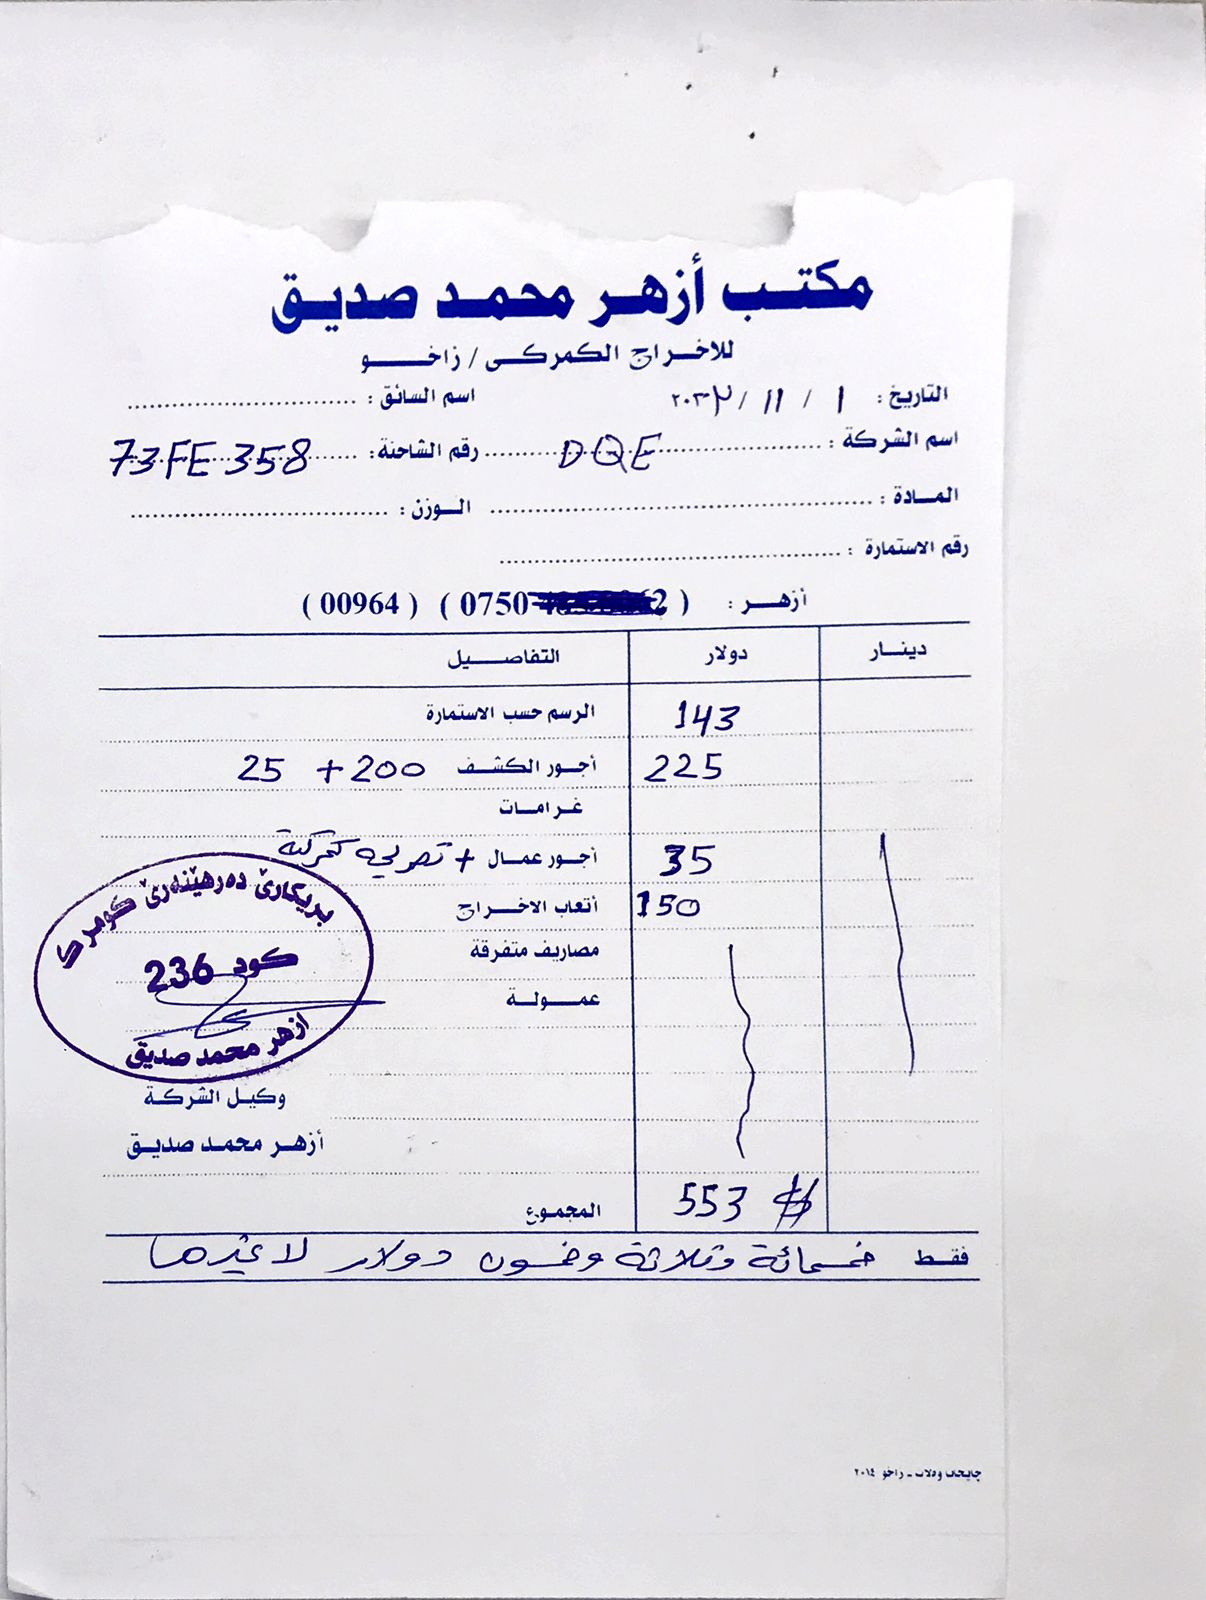 مكتب أزهر محمد صديق
للاخراج الكمركى / زاخو
التاريخ : ١ / ١١ / ٢٠٢٢ اسم السائق :
اسم الشركة : DQE رقم الشاحنة: 73FE358
المادة : الوزن :
رقم الاستمارة :
أزهر : ( 0750 2 ) ( 00964 )
دينار دولار التفاصيل
143 الرسم حسب الاستمارة
225 أجور الكشف 200 + 25
غرامات
35 أجور عمال + كمركية
150 أتعاب الاخراج
مصاريف متفرقة
عمولة
بريكارێ دەرهێنەرێ كومرك
كود 236
ازهر محمد صديق
وكيل الشركة
أزهر محمد صديق
553 $ المجموع
فقط خمسمائة وثلاثة وخمسون دولار لا غيرها
زاخو ٢٠١٤